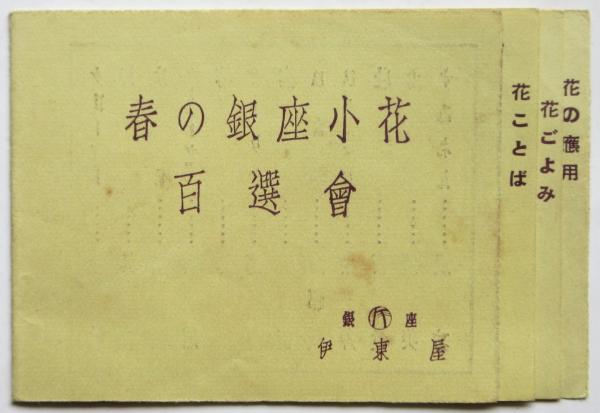 春の銀座小花
百選會
銀座
伊東屋
花ことば
花ごよみ
花の應用